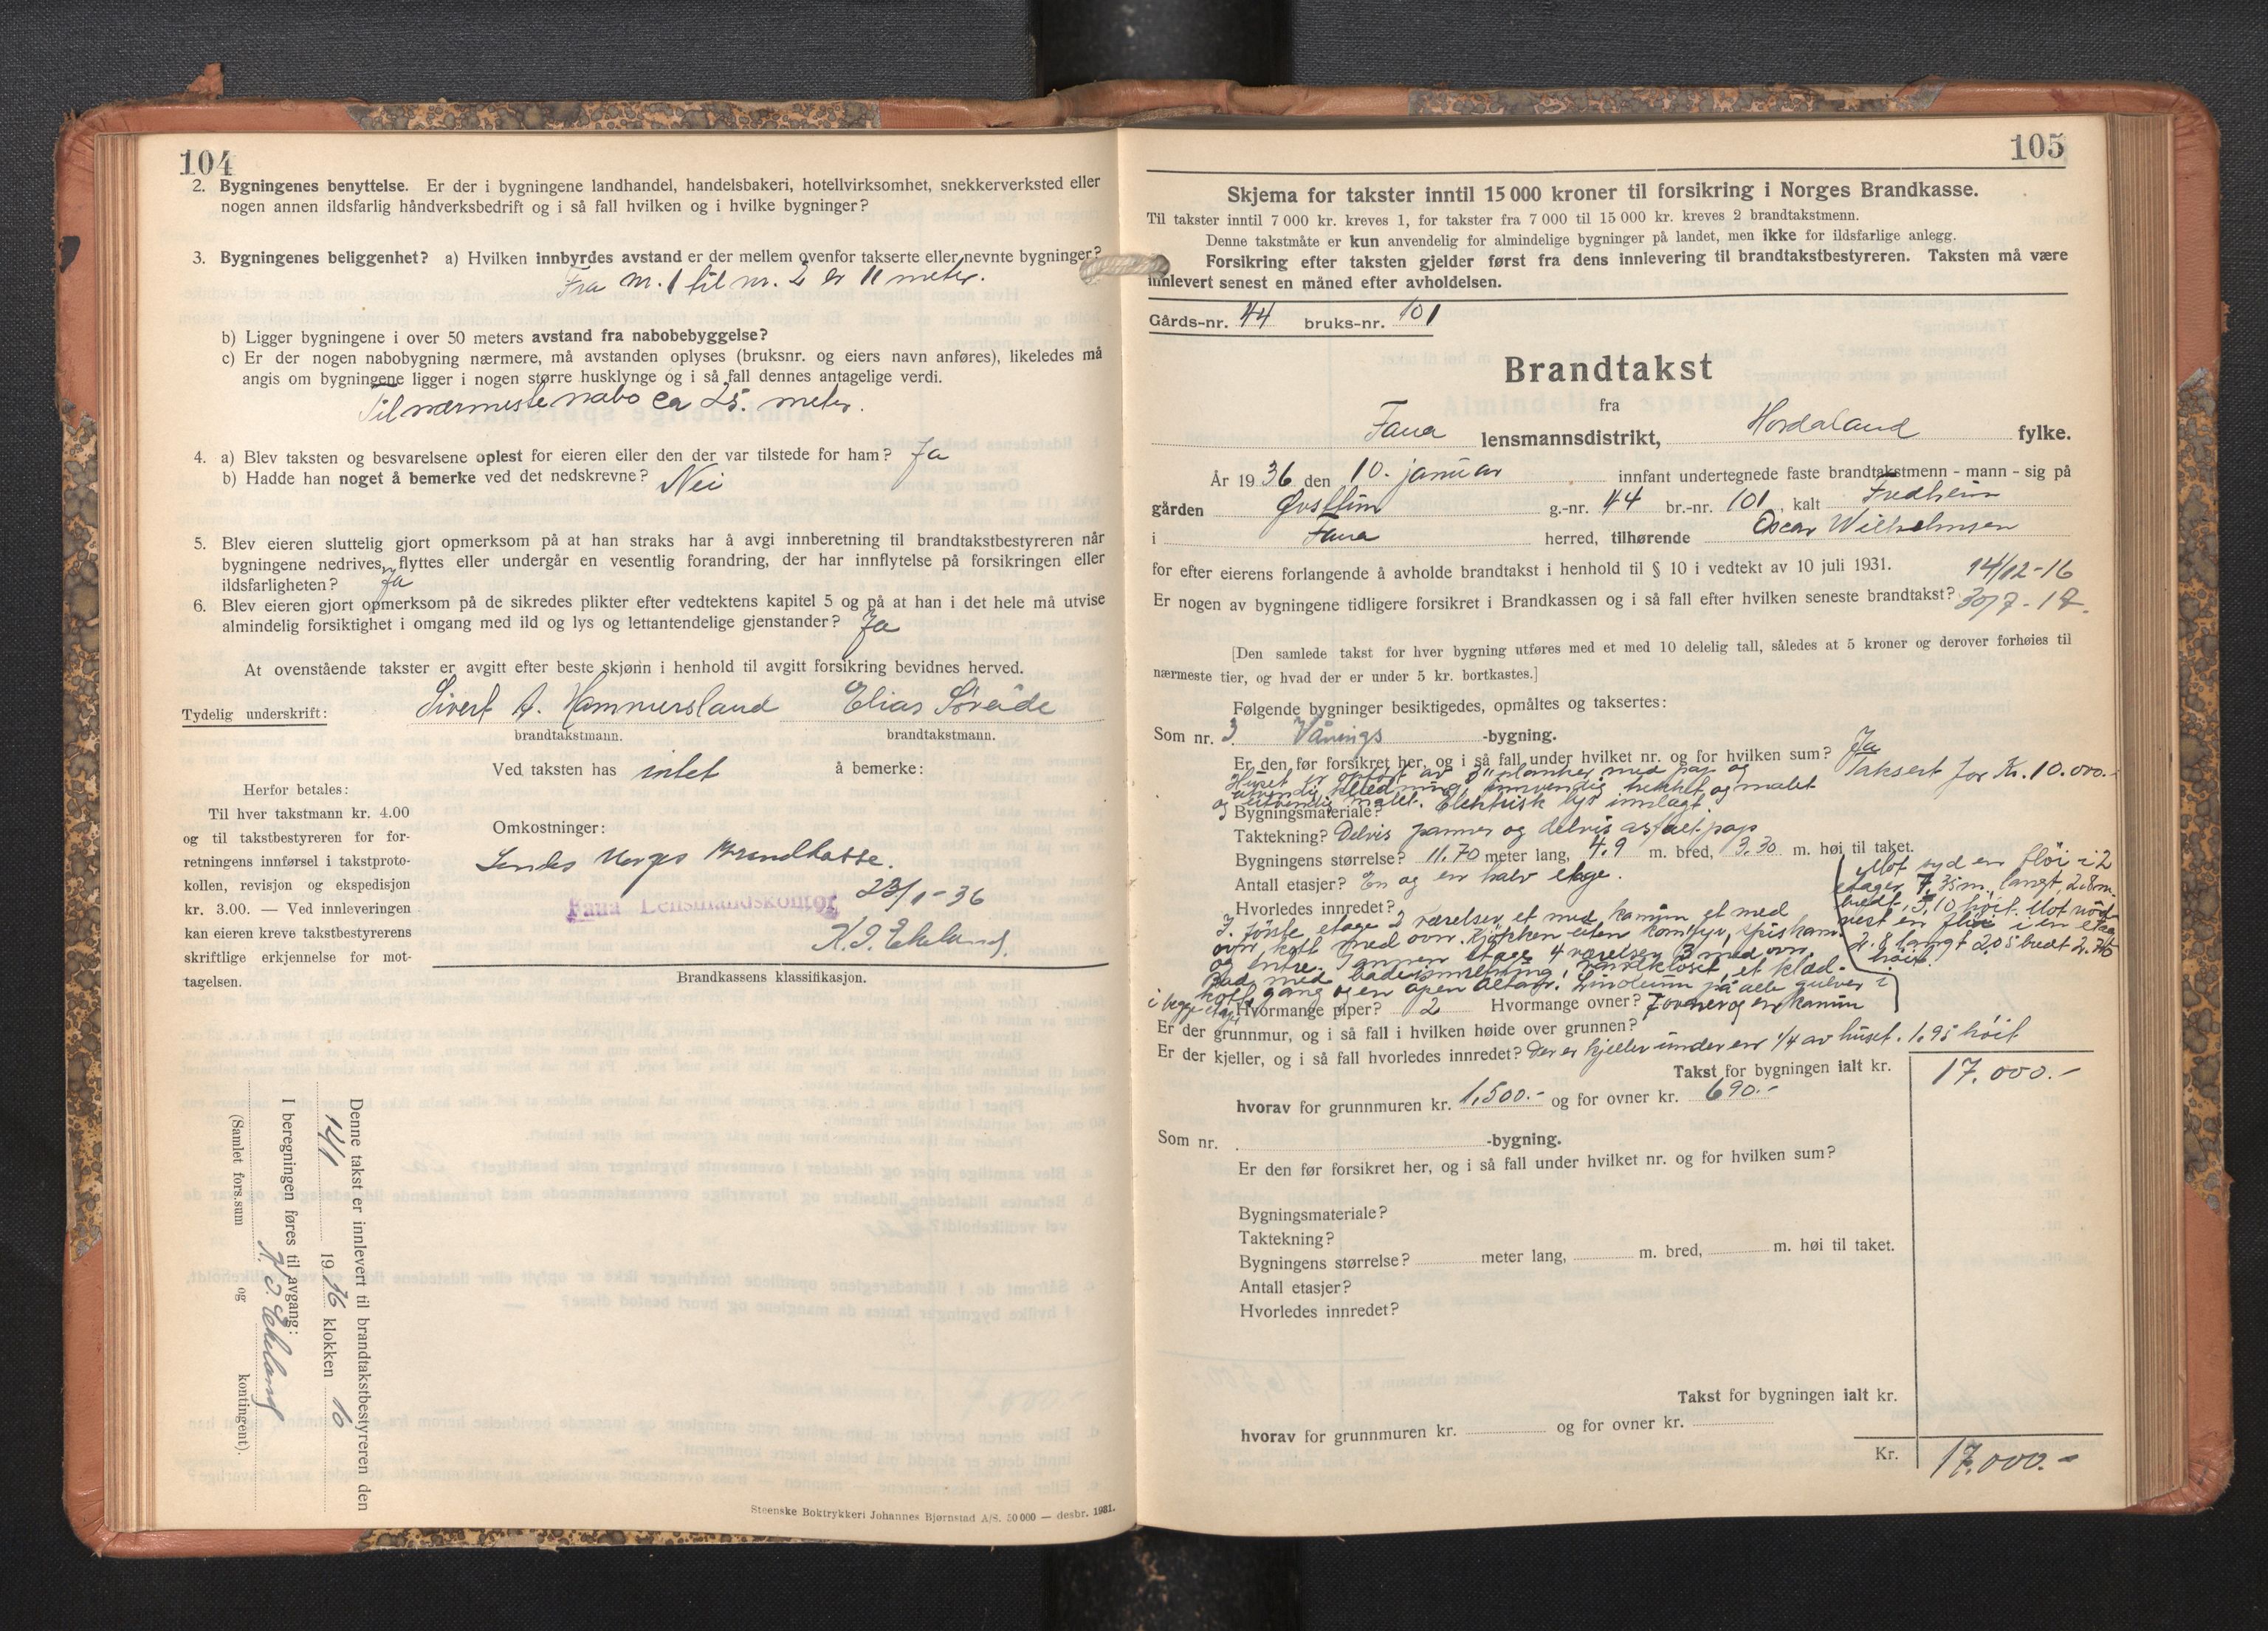 104
2. Bygningenes benyttelse. Er der i bygningene landhandel, handelsbakeri, hotellvirksomhet, snekkerverksted eller
nogen annen ildsfarlig håndverksbedrift og i så fall hvilken og i hvilke bygninger?
3. Bygningenes beliggenhet? a) Hvilken innbyrdes avstand er der mellem ovenfor takserte eller nevnte bygninger?
Fra nr. 1 til nr. 2 er 11 meter.
b) Ligger bygningene i over 50 meters avstand fra nabobebyggelse?
c) Er der nogen nabobygning nærmere, må avstanden oplyses (bruksnr. og eiers navn anføres), likeledes må
angis om bygningene ligger i nogen større husklynge og i så fall dennes antagelige verdi.
Til nærmeste nabo ca 25. meter.
4. a) Blev taksten og besvarelsene oplest for eieren eller den der var tilstede for ham? Ja
b) Hadde han noget å bemerke ved det nedskrevne? Nei
5. Blev eieren sluttelig gjort opmerksom på at han straks har å avgi innberetning til brandtakstbestyreren når
bygningene nedrives, flyttes eller undergår en vesentlig forandring, der har innflytelse på forsikringen eller
ildsfarligheten? Ja
6. Blev eieren gjort opmerksom på de sikredes plikter efter vedtektens kapitel 5 og på at han i det hele må utvise
almindelig forsiktighet i omgang med ild og lys og lettantendelige gjenstander? Ja
At ovenstående takster er avgitt efter beste skjønn i henhold til avgitt forsikring bevidnes herved.
Tydelig underskrift: Sivert A. Hammersland Elias Søreide
brandtakstmann. brandtakstmann.
Ved taksten has intet å bemerke:
Herfor betales:
Til hver takstmann kr. 4.00
og til takstbestyreren for for-
retningens innførsel i takstproto-
kollen, revisjon og ekspedisjon
kr. 3.00. — Ved innleveringen
kan eieren kreve takstbestyrerens
skriftlige erkjennelse for mot-
tagelsen.
Omkostninger:
Sendes Norges Brandkasse.
23/1-36
Fana Lensmandskontor
N. J. Ekeland.
Brandkassens klassifikasjon.
Denne takst er innlevert til brandtakstbestyreren den
14/1 1936 klokken 10
I beregningen føres til avgang:
N. J. Ekeland
(Samlet fors.sum og kontingent).
Steenske Boktrykkeri Johannes Bjørnstad A/S. 50 000 — desbr. 1931.
105
Skjema for takster inntil 15 000 kroner til forsikring i Norges Brandkasse.
Til takster inntil 7 000 kr. kreves 1, for takster fra 7 000 til 15 000 kr. kreves 2 brandtakstmenn.
Denne takstmåte er kun anvendelig for almindelige bygninger på landet, men ikke for ildsfarlige anlegg.
Forsikring efter taksten gjelder først fra dens innlevering til brandtakstbestyreren. Taksten må være
innlevert senest en måned efter avholdelsen.
Gårds-nr. 44 bruks-nr. 101
Brandtakst
fra
Fana lensmannsdistrikt, Hordaland fylke.
År 1936 den 10. januar innfant undertegnede faste brandtakstmenn - mann - sig på
gården Øvsttun g.-nr. 44 br.-nr. 101, kalt Fredheim
i Fana herred, tilhørende Oscar Wilhelmsen
for efter eierens forlangende å avholde brandtakst i henhold til § 10 i vedtekt av 10 juli 1931. 14/12-16
Er nogen av bygningene tidligere forsikret i Brandkassen og i så fall efter hvilken seneste brandtakst? 30/7-18.
[Den samlede takst for hver bygning utføres med et med 10 delelig tall, således at 5 kroner og derover forhøies til
nærmeste tier, og hvad der er under 5 kr. bortkastes.]
Følgende bygninger besiktigedes, opmåltes og taksertes:
Som nr. 3 Vånings -bygning.
Er den før forsikret her, og i så fall under hvilket nr. og for hvilken sum? Ja
Taksert for Kr. 10.000.-
Huset er opført av 3" planker med pap og
utvendig kledning, innvendig trekket og malet
og utvendig malet. Elektrisk lys innlagt.
Bygningsmateriale?
Taktekning? Delvis panner og delvis asfalt pap
Bygningens størrelse? 11.70 meter lang, 4.9 m. bred, 3.30 m. høi til taket.
Antall etasjer? En og en halv etage.
Mot syd en fløi i 2
etager 7.35 m. langt, 2.8 m.
bredt, 5.10 høit. Mot nord
vest en fløi i en etage
2.8 langt 2.05 bredt 2.76
høit.
Hvorledes innredet?
I første etage 2 værelser, et med kamin et med
ovn, kott med ovn. Kjøkken uten komfyr, spiskam.
og entre. I annen etage 4 værelser, 3 med ovn,
bad med badeinnretning, vannkloset, et klæd-
kott, gang og en åpen altan. Linoleum på alle gulver i
i begge etager
Hvormange piper? 2 Hvormange ovner? 7 ovner og en kamin
Er der grunnmur, og i så fall i hvilken høide over grunnen?
Er der kjeller, og i så fall hvorledes innredet? Der er kjeller under en 1/4 av huset. 1.95 høit
Takst for bygningen ialt kr. 17.000.-
hvorav for grunnmuren kr. 1.500.- og for ovner kr. 690.-
Som nr. -bygning.
Er den før forsikret her, og i så fall under hvilket nr. og for hvilken sum?
Bygningsmateriale?
Taktekning?
Bygningens størrelse? meter lang, m. bred, m. høi til taket.
Antall etasjer?
Hvorledes innredet?
Takst for bygningen ialt kr.
hvorav for grunnmuren kr. og for ovner kr.
Kr. 17.000.-